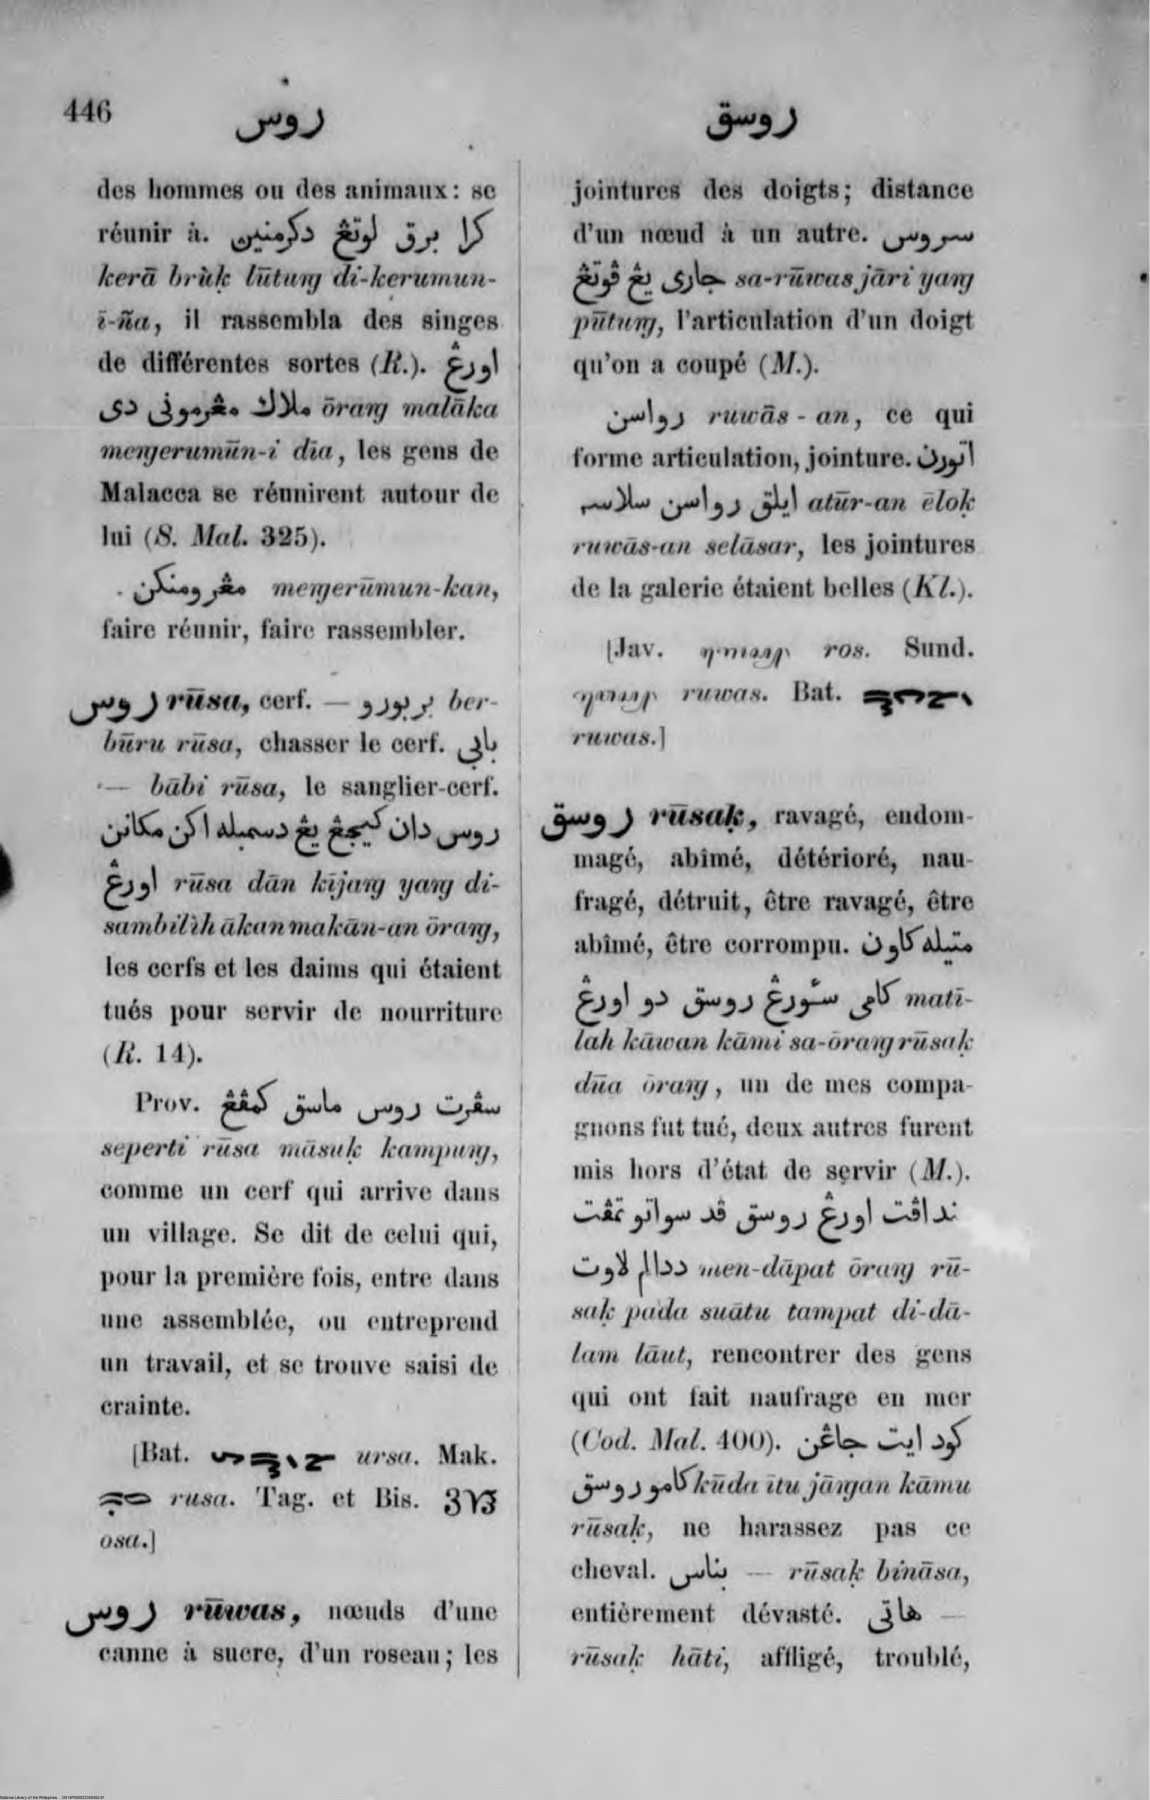 446
روس
روسق
des hommes ou des animaux: se
réunir à. كرا برق لوتڠ دكرمنين
kerā brùk̤ lūtuŋ di-kerumun-
ī-ña, il rassembla des singes
de différentes sortes (R.). اورڠ
ملاك مڠرمونى دى ōraŋ malāka
meŋerumūn-i dīa, les gens de
Malacca se réunirent autour de
lui (S. Mal. 325).
مڠرومنكن meŋerūmun-kan,
faire réunir, faire rassembler.
روس rūsa, cerf. — بربورو ber-
būru rūsa, chasser le cerf. بابي
— bābi rūsa, le sanglier-cerf.
روس دان كيجڠ يڠ دسمبله اكن مكانن
اورڠ rūsa dān kījaŋ yaŋ di-
sambilìh ākan makān-an ōraŋ,
les cerfs et les daims qui étaient
tués pour servir de nourriture
(R. 14).
Prov. سڤرت روس ماسق كمڤڠ
seperti rūsa māsuk̤ kampuŋ,
comme un cerf qui arrive dans
un village. Se dit de celui qui,
pour la première fois, entre dans
une assemblée, ou entreprend
un travail, et se trouve saisi de
crainte.
[Bat. ursa. Mak.
rusa. Tag. et Bis.
osa.]
روس rūwas, nœuds d'une
canne à sucre, d'un roseau; les
jointures des doigts; distance
d'un nœud à un autre. سروس
جارى يڠ ڤوتڠ sa-rūwas jāri yaŋ
pūtuŋ, l'articulation d'un doigt
qu'on a coupé (M.).
رواسن ruwās-an, ce qui
forme articulation, jointure. اتورن
ايلق رواسن سلاسر atūr-an ēlok̤
ruwās-an selāsar, les jointures
de la galerie étaient belles (Kl.).
[Jav. ros. Sund.
ruwas. Bat.
ruwas.]
روسق rūsak̤, ravagé, endom-
magé, abîmé, détérioré, nau-
fragé, détruit, être ravagé, être
abîmé, être corrompu. متيله كاون
كامي سئورڠ روسق دو اورڠ matī-
lah kāwan kāmi sa-ōraŋ rūsak̤
dūa ōraŋ, un de mes compa-
gnons fut tué, deux autres furent
mis hors d'état de servir (M.).
نداڤت اورڠ روسق ڤد سواتو تمڤت
ددالم لاوت men-dāpat ōraŋ rū-
sak̤ pada suātu tampat di-dā-
lam lāut, rencontrer des gens
qui ont fait naufrage en mer
(Cod. Mal. 400). كود ايت جاڠن
كامو روسق kūda ītu jāŋan kāmu
rūsak̤, ne harassez pas ce
cheval. بناس — rūsak̤ bināsa,
entièrement dévasté. هاتى —
rūsak̤ hāti, affligé, troublé,